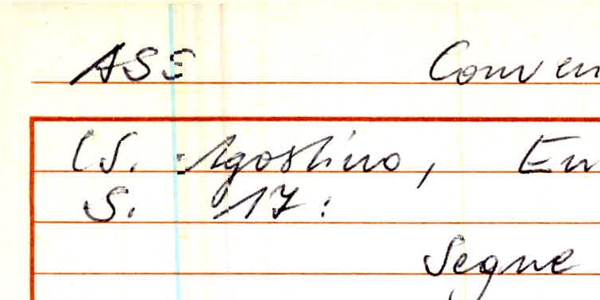 ASE Conven
(S. Agostino, En
S. 17:
Segue